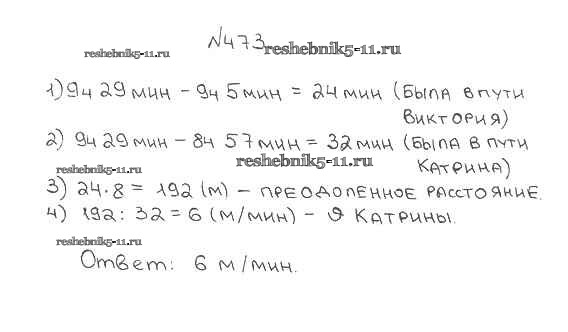 №473
reshebnik5-11.ru
reshebnik5-11.ru
1) 9ч 29 мин – 9ч 5 мин = 24 мин (была в пути
Виктория)
2) 9ч 29 мин – 8ч 57 мин = 32 мин (была в пути
reshebnik5-11.ru
Катрина)
reshebnik5-11.ru
3) 24·8 = 192 (м) – преодоленное расстояние.
4) 192 : 32 = 6 (м/мин) – υ Катрины.
reshebnik5-11.ru
Ответ: 6 м/мин.